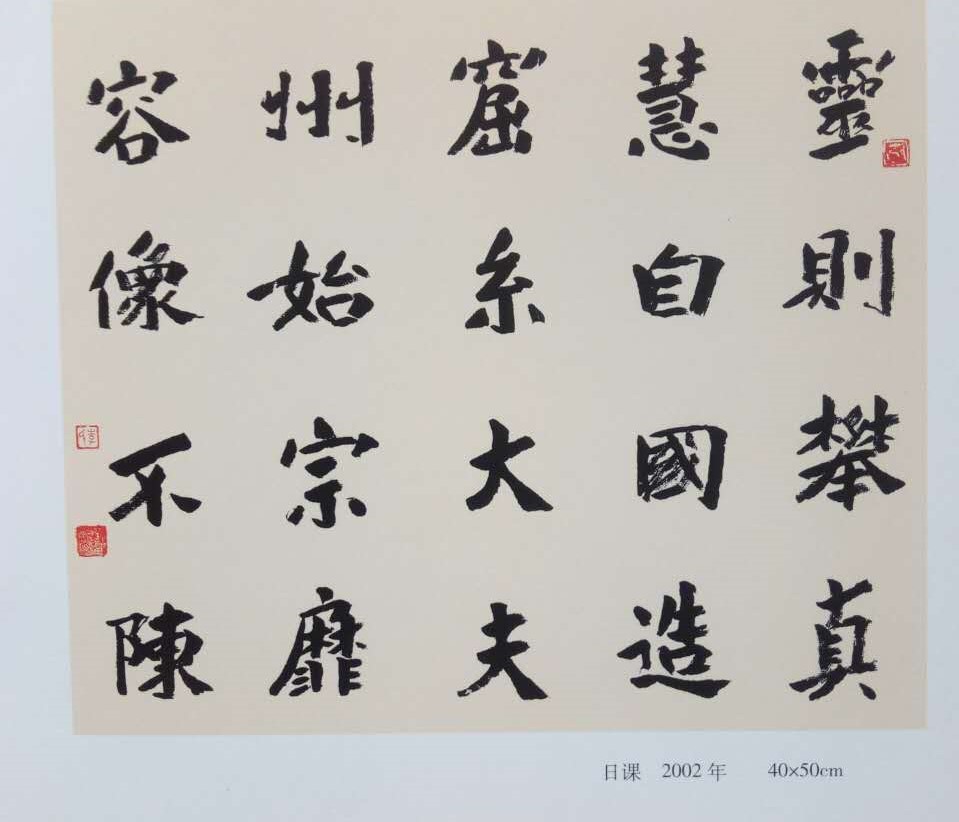 靈則攀真
慧自國造
窟系大夫
州始宗靡
容像不陳
日课 2002 年 40×50cm